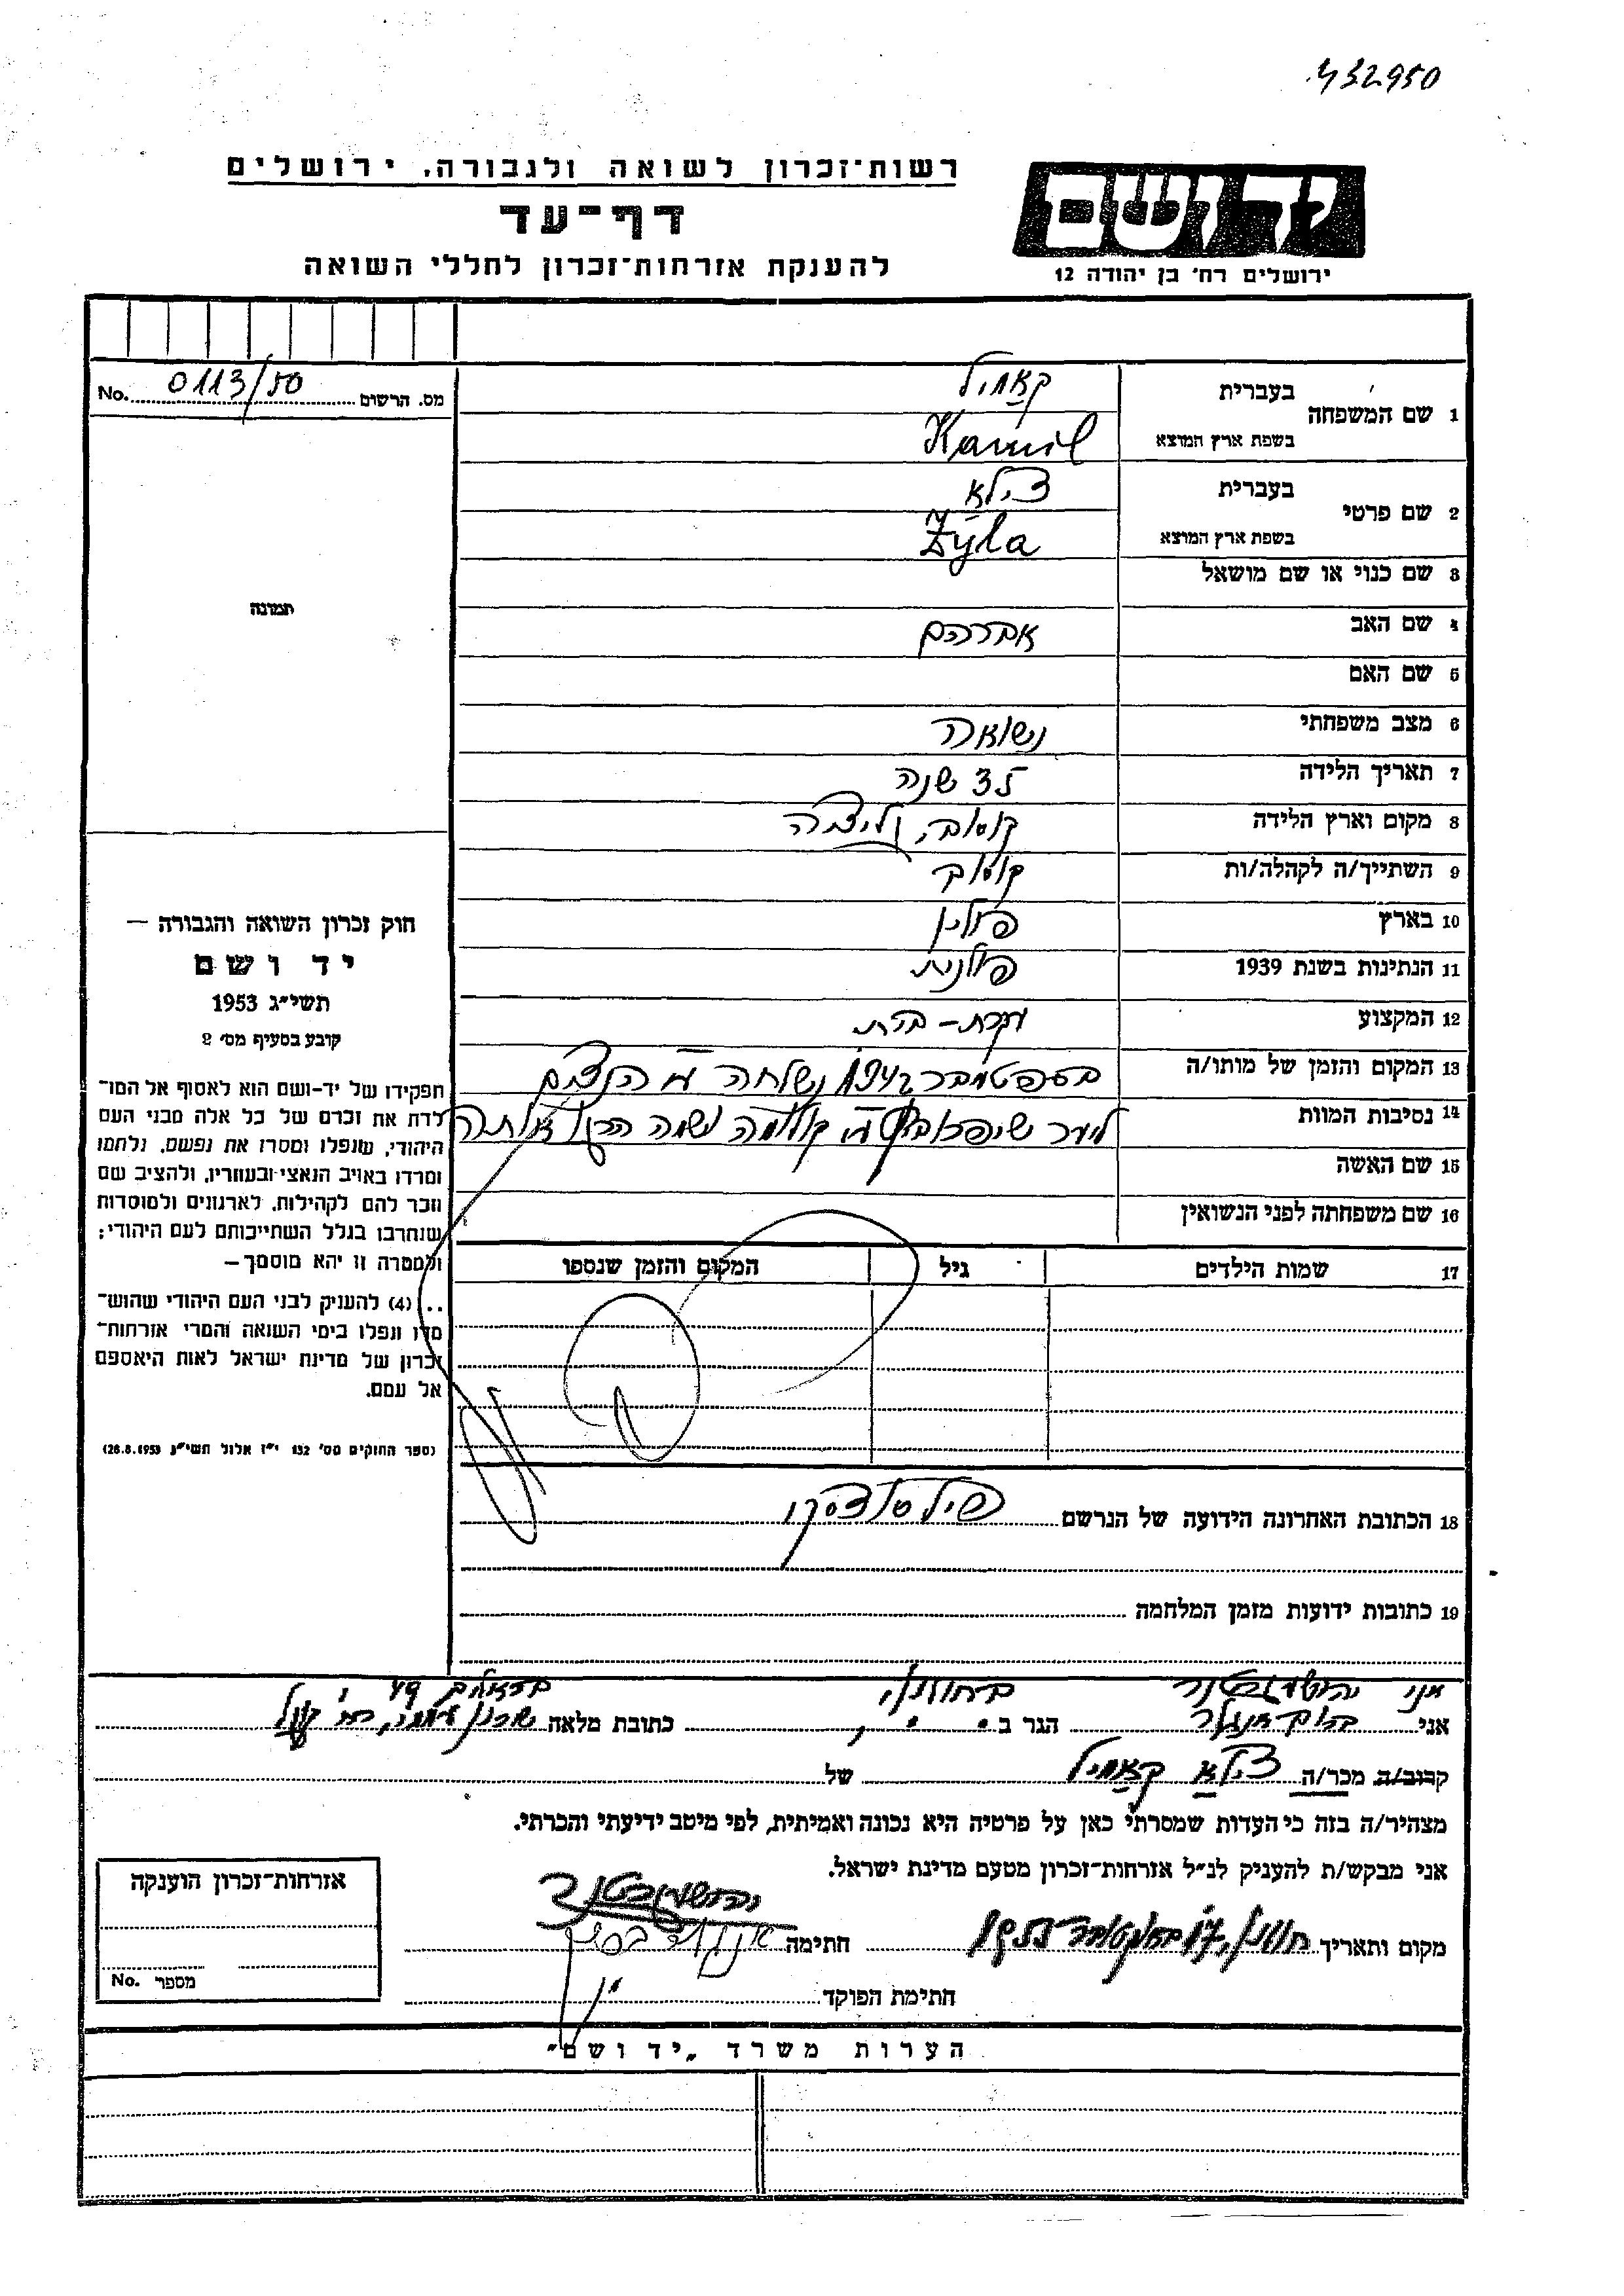 432950
רשות־זכרון לשואה ולגבורה, ירושלים
יד ושם
דף־עד
להענקת אזרחות־זכרון לחללי השואה
ירושלים רח׳ בן יהודה 12
מס. הרשום 0113/50 No.
1 שם המשפחה
בעברית קאמיל
בשפת ארץ המוצא Kamil
2 שם פרטי
בעברית צילא
בשפת ארץ המוצא Żyla
3 שם כנוי או שם מושאל
4 שם האב אברהם
5 שם האם
6 מצב משפחתי נשואה
7 תאריך הלידה שנה
8 מקום וארץ הלידה קוטוב, גליציה
9 השתייך/ה לקהלה/ות קוטוב
10 בארץ פולין
11 הנתינות בשנת 1939 פולנית
12 המקצוע עקרת-בית
13 המקום והזמן של מותו/ה בספטמבר 1942 נשלחה ע״י הנאצים
14 נסיבות המוות ליער ע״י קולומיה ושמה
15 שם האשה
16 שם משפחתה לפני הנשואין
17 שמות הילדים גיל המקום והזמן שנספו
תמונה
חוק זכרון השואה והגבורה —
יד ושם
תשי״ג 1953
קובע בסעיף מס׳ 2
תפקידו של יד-ושם הוא לאסוף אל המו־
לדת את זכרם של כל אלה מבני העם
היהודי, שנפלו ומסרו את נפשם, נלחמו
ומרדו באויב הנאצי ובעוזריו, ולהציב שם
וזכר להם לקהילות, לארגונים ולמוסדות
שנחרבו בגלל השתייכותם לעם היהודי;
ולמטרה זו יהא מוסמך —
. . (4) להעניק לבני העם היהודי שהוש־
מדו ונפלו בימי השואה והמרי אזרחות־
זכרון של מדינת ישראל לאות היאספם
אל עמם.
(ספר החוקים מס׳ 132 י״ז אלול תשי״ג 28.8.1953)
18 הכתובת האחרונה הידועה של הנרשם
19 כתובות ידועות מזמן המלחמה
אני
אני הגר ב כתובת מלאה
קרוב/ה מכר/ה צילא קאמיל של
מצהיר/ה בזה כי העדות שמסרתי כאן על פרטיה היא נכונה ואמיתית, לפי מיטב ידיעתי והכרתי.
אני מבקש/ת להעניק לנ״ל אזרחות־זכרון מטעם מדינת ישראל.
מקום ותאריך חתימה
חתימת הפוקד
אזרחות־זכרון הוענקה
מספר No.
הערות משרד „יד ושם״